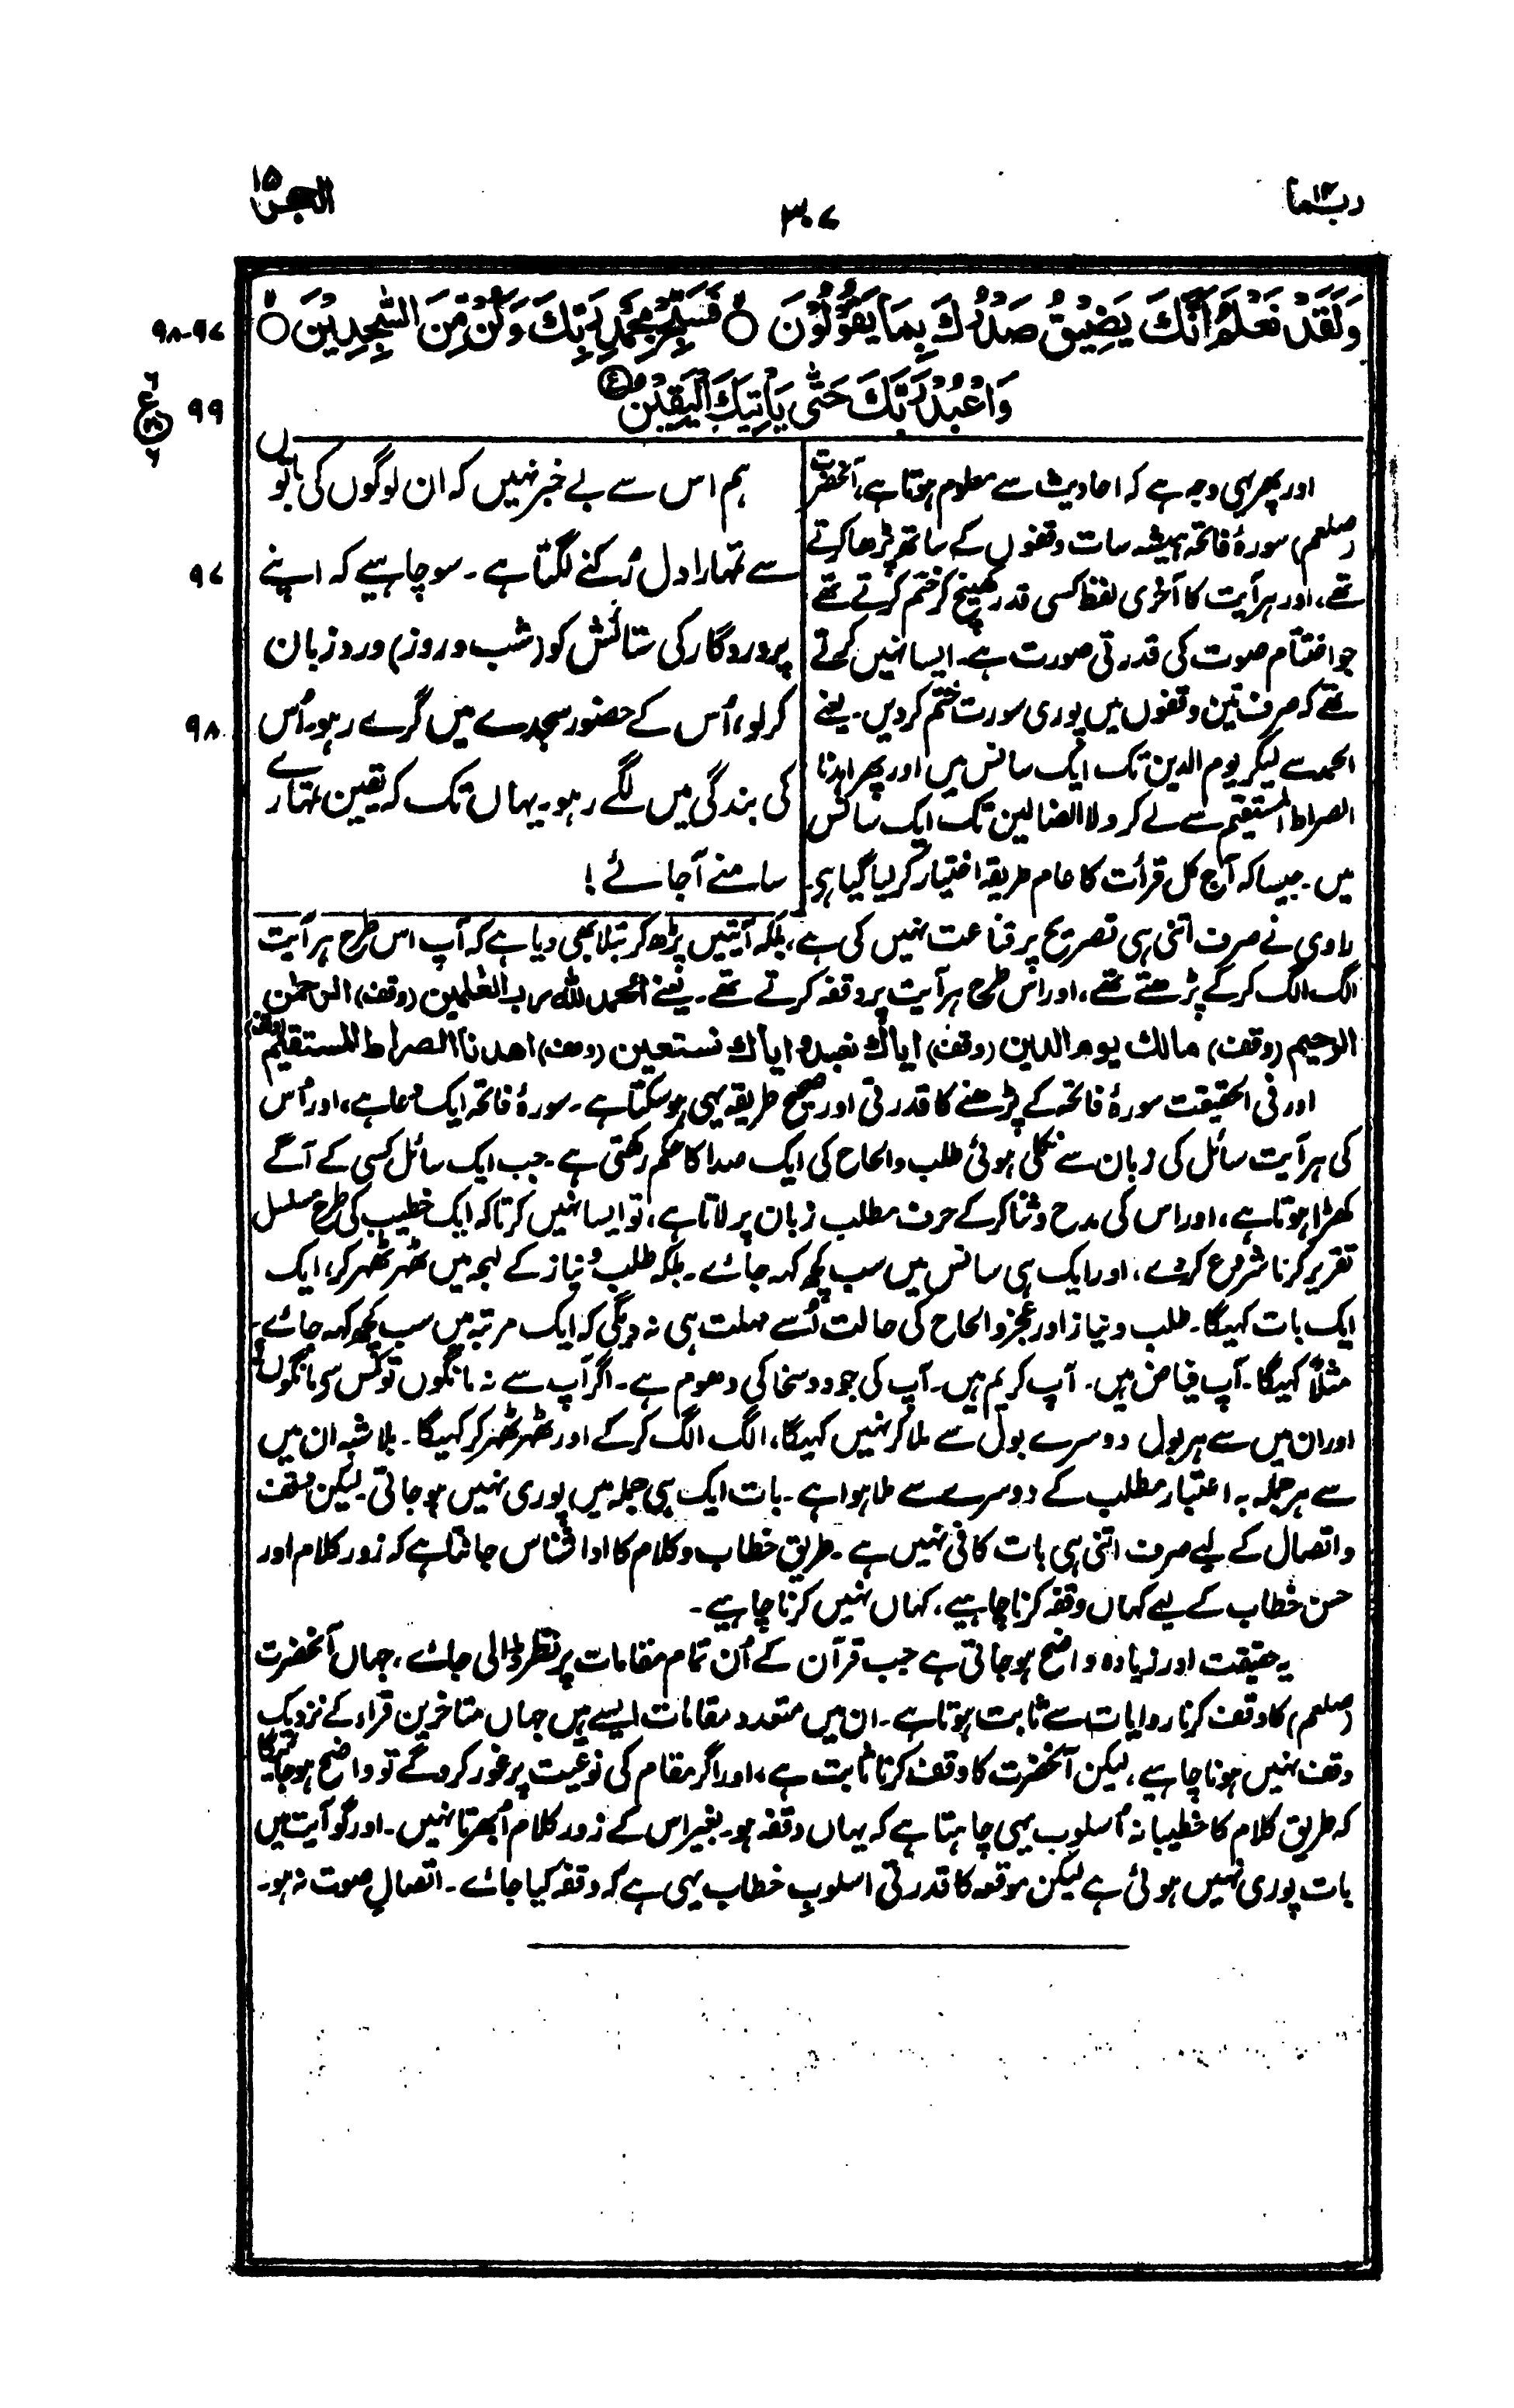 ربما ۱۴
۳۰۷
الحجر ۱۵
وَلَقَدْ نَعْلَمُ اَنَّكَ يَضِيْقُ صَدْرُكَ بِمَا يَقُوْلُوْنَ ۝ فَسَبِّحْ بِحَمْدِ رَبِّكَ وَكُنْ مِّنَ السّٰجِدِيْنَ ۝
۹۷-۹۸
وَاعْبُدْ رَبَّكَ حَتّٰى يَاْتِيَكَ الْيَقِيْنُ
۹۹
ع
اور پھر یہی وجہ ہے کہ احادیث سے معلوم ہوتا ہے، آنحضرت
(صلعم) سورۂ فاتحہ ہمیشہ سات وقفوں کے ساتھ پڑھا کرتے
تھے، اور ہر آیت کا آخری لفظ کسی قدر کھینچ کر ختم کرتے تھے
جو اختتام صوت کی قدرتی صورت ہے۔ ایسا نہیں کرتے
تھے کہ صرف تین وقفوں میں پوری سورت ختم کردیں۔ یعنے
الحمد سے لیکر یوم الدین تک ایک سانس میں اور پھر اھدنا
الصراط المستقیم سے لے کر ولا الضالین تک ایک سانس
میں۔ جیسا کہ آج کل قرأت کا عام طریقہ اختیار کر لیا گیا ہی۔
ہم اس سے بے خبر نہیں کہ ان لوگوں کی باتوں
سے تمہارا دل رُکنے لگتا ہے۔ سو چاہیے کہ اپنے
۹۷
پروردگار کی ستائش کو (شب و روز) ورد زبان
کرلو، اُس کے حضور سجدے میں گرے رہو۔ اُس
۹۸
کی بندگی میں لگے رہو۔ یہاں تک کہ یقین تمہارے
سامنے آجائے!
راوی نے صرف اتنی ہی تصریح پر قناعت نہیں کی ہے، بلکہ آیتیں پڑھ کر بتلا بھی دیا ہے کہ آپ اس طرح ہر آیت
الگ الگ کرکے پڑھتے تھے، اور اس طرح ہر آیت پر وقفہ کرتے تھے۔ یعنے الحمد للہ رب العلمین (وقف) الرحمٰن
الرحیم (وقف) مالك یوم الدین (وقف) ایاك نعبد و ایاك نستعین (وقف) اھدنا الصراط المستقیم (وقف)
اور فی الحقیقت سورۂ فاتحہ کے پڑھنے کا قدرتی اور صحیح طریقہ یہی ہوسکتا ہے۔ سورۂ فاتحہ ایک دُعا ہے، اور اُس
کی ہر آیت سائل کی زبان سے نکلی ہوئی طلب و الحاح کی ایک صدا کا حکم رکھتی ہے۔ جب ایک سائل کسی کے آگے
کھڑا ہوتا ہے، اور اس کی مدح و ثنا کرکے حرف مطلب زبان پر لاتا ہے، تو ایسا نہیں کرتا کہ ایک خطیب کی طرح مسلسل
تقریر کرنا شروع کردے، اور ایک ہی سانس میں سب کچھ کہہ جائے۔ بلکہ طلب و نیاز کے لہجہ میں ٹھہر ٹھہر کر، ایک
ایک بات کہیگا۔ طلب و نیاز اور عجز و الحاح کی حالت اُسے مہلت ہی نہ دیگی کہ ایک مرتبہ میں سب کچھ کہہ جائے۔
مثلاً کہیگا۔ آپ فیاض ہیں۔ آپ کریم ہیں۔ آپ کی جود و سخا کی دھوم ہے۔ اگر آپ سے نہ مانگوں تو کس سی مانگوں؟
اور ان میں سے ہر بول دوسرے بول سے ملا کر نہیں کہیگا، الگ الگ کرکے اور ٹھہر ٹھہر کر کہیگا۔ بلا شبہ ان میں
سے ہر جملہ بہ اعتبار مطلب کے دوسرے سے ملا ہوا ہے۔ بات ایک ہی جملہ میں پوری نہیں ہو جاتی۔ لیکن وقف
و اتصال کے لیے صرف اتنی ہی بات کافی نہیں ہے۔ طریق خطاب و کلام کا ادا شناس جانتا ہے کہ زور کلام اور
حسن خطاب کے لیے کہاں وقفہ کرنا چاہیے، کہاں نہیں کرنا چاہیے۔
یہ حقیقت اور زیادہ واضح ہو جاتی ہے جب قرآن کے اُن تمام مقامات پر نظر ڈالی جائے، جہاں آنحضرت
(صلعم) کا وقف کرنا روایات سے ثابت ہوتا ہے۔ ان میں متعدد مقامات ایسے ہیں جہاں متاخرین قراء کے نزدیک
وقف نہیں ہونا چاہیے، لیکن آنحضرت کا وقف کرنا ثابت ہے، اور اگر مقام کی نوعیت پر غور کروگے تو واضح ہوجائیگا
کہ طریق کلام کا خطیبانہ اُسلوب یہی چاہتا ہے کہ یہاں وقفہ ہو۔ بغیر اس کے زور کلام اُبھرتا نہیں۔ اور گو آیت میں
بات پوری نہیں ہوئی ہے لیکن موقعہ کا قدرتی اسلوبِ خطاب یہی ہے کہ وقفہ کیا جائے۔ اتصالِ صوت نہ ہو۔